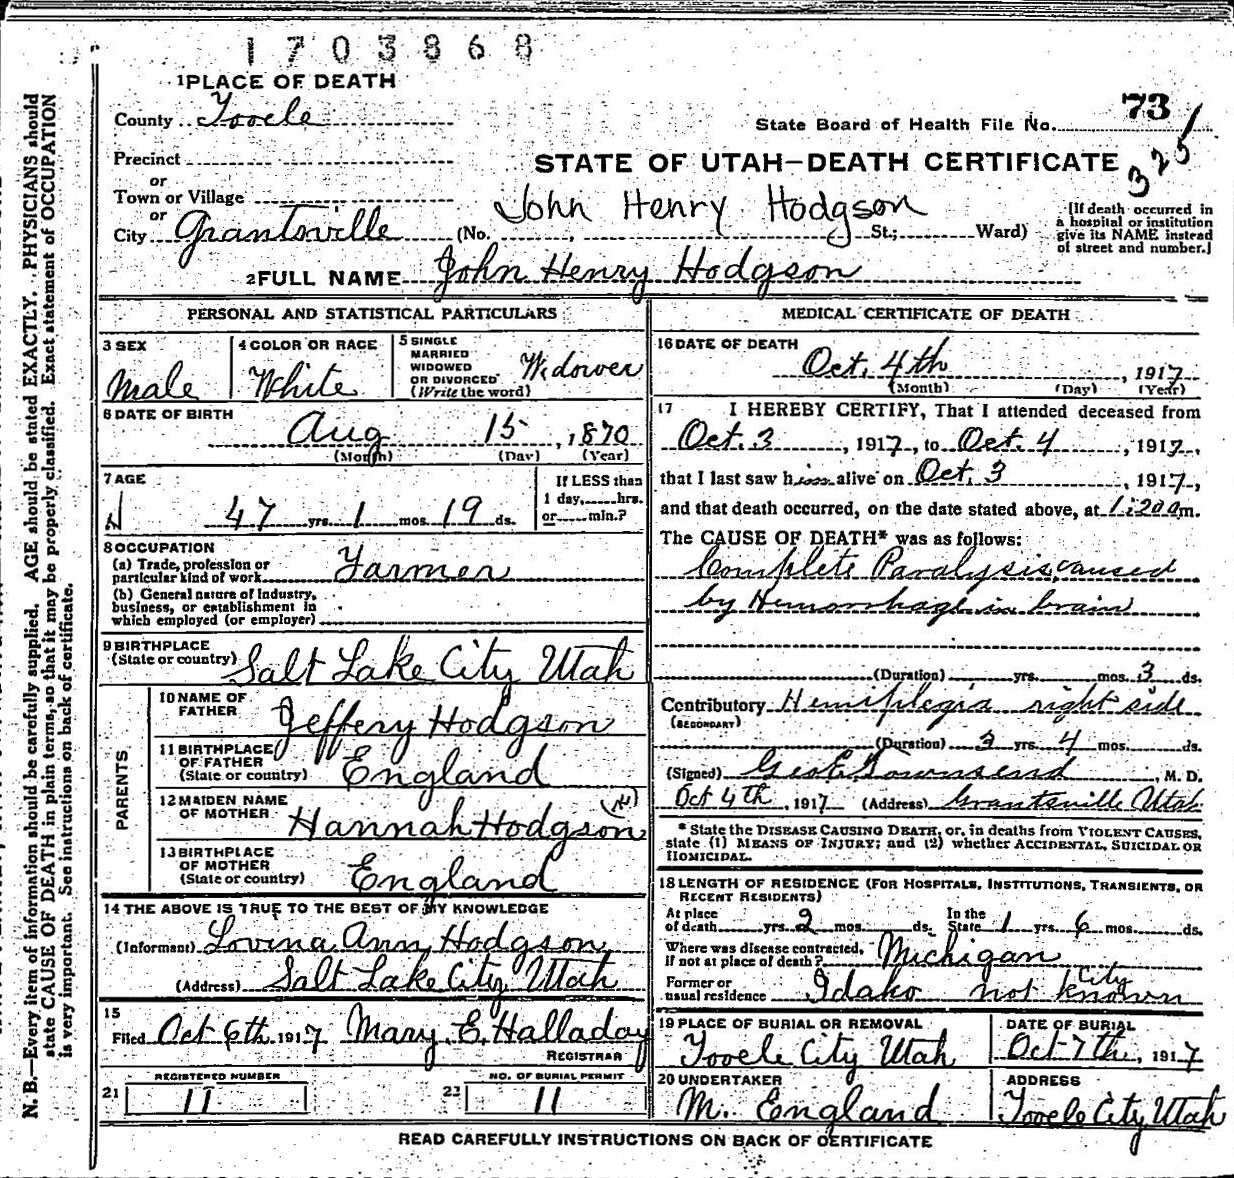 1703868
1 PLACE OF DEATH
County Tooele
73
State Board of Health File No.
325
Precinct
or
STATE OF UTAH—DEATH CERTIFICATE
Town or Village
or
John Henry Hodgson
City Grantsville (No. , St.; Ward)
[If death occurred in
a hospital or institution
give its NAME instead
of street and number.]
2 FULL NAME John Henry Hodgson
PERSONAL AND STATISTICAL PARTICULARS
3 SEX
Male
4 COLOR OR RACE
White
5 SINGLE
MARRIED
WIDOWED
OR DIVORCED
(Write the word)
Widower
6 DATE OF BIRTH
Aug 15, 1870
(Month) (Day) (Year)
7 AGE
47 yrs. 1 mos. 19 ds.
If LESS than
1 day, hrs.
or min.?
8 OCCUPATION
(a) Trade, profession or
particular kind of work Farmer
(b) General nature of industry,
business, or establishment in
which employed (or employer)
9 BIRTHPLACE
(State or country) Salt Lake City Utah
PARENTS
10 NAME OF
FATHER Jeffery Hodgson
11 BIRTHPLACE
OF FATHER
(State or country) England
12 MAIDEN NAME
OF MOTHER Hannah Hodgson (N)
13 BIRTHPLACE
OF MOTHER
(State or country) England
14 THE ABOVE IS TRUE TO THE BEST OF MY KNOWLEDGE
(Informant) Lovina Ann Hodgson
(Address) Salt Lake City Utah
15
Filed Oct 6th 1917 Mary E. Halladay
REGISTRAR
REGISTERED NUMBER
21 11
NO. OF BURIAL PERMIT
22 11
MEDICAL CERTIFICATE OF DEATH
16 DATE OF DEATH
Oct. 4th, 1917
(Month) (Day) (Year)
17 I HEREBY CERTIFY, That I attended deceased from
Oct. 3, 1917, to Oct. 4, 1917,
that I last saw him alive on Oct. 3, 1917,
and that death occurred, on the date stated above, at 1:20 a m.
The CAUSE OF DEATH* was as follows:
Complete Paralysis, caused
by Hemorrhage in brain
(Duration) yrs. mos. 3 ds.
Contributory Hemiplegia right side
(SECONDARY)
(Duration) 3 yrs. 4 mos. ds.
(Signed) Geo E Townsend, M. D.
Oct 4th, 1917 (Address) Grantsville Utah
* State the DISEASE CAUSING DEATH, or, in deaths from VIOLENT CAUSES,
state (1) MEANS OF INJURY; and (2) whether ACCIDENTAL, SUICIDAL OR
HOMICIDAL.
18 LENGTH OF RESIDENCE (FOR HOSPITALS, INSTITUTIONS, TRANSIENTS, OR
RECENT RESIDENTS)
At place
of death yrs. 2 mos. ds.
In the
State 1 yrs. 6 mos. ds.
Where was disease contracted,
if not at place of death? Michigan
Former or
usual residence Idaho City not known
19 PLACE OF BURIAL OR REMOVAL
Tooele City Utah
DATE OF BURIAL
Oct 7th, 1917
20 UNDERTAKER
M. England
ADDRESS
Tooele City Utah
READ CAREFULLY INSTRUCTIONS ON BACK OF CERTIFICATE
N. B.—Every item of information should be carefully supplied. AGE should be stated EXACTLY. PHYSICIANS should
state CAUSE OF DEATH in plain terms, so that it may be properly classified. Exact statement of OCCUPATION
is very important. See instructions on back of certificate.